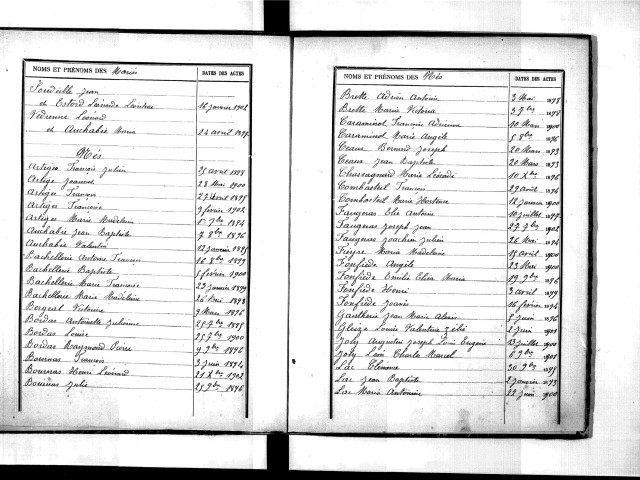 NOMS ET PRÉNOMS DES Mariés DATES DES ACTES
Jean
et Estord Léonarde 16 janvier 1902
Védrenne Léonard
et Auchabie Maria 24 avril
Nés
Artiges François Julien 25 avril 1899
Artige Jeannel 28 Mai 1900
Artiges François 27 avril 1895
Artiges Françoise 9 février 1902
Artiges Marie Madeleine 1894
Auchabie Jean Baptiste 7 8bre 1896
Auchabie Valentin 12 janvier 1895
Bachellerie Antoine François 10 8bre 1899
Bachellerie Baptiste 5 février 1900
Bachellerie Marie Françoise 23 janvier 1899
Bachellerie Marie Madeleine 26 Mai 1898
Bergeal Victorine 9 Mars 1896
Bordas Antoinette Julienne 25 7bre 1895
Bordas Louise 25 7bre 1900
Bordas Raymond Pierre 9 9bre 1896
Bournas François 3 Juin 1894
Bournas Henri Léonard 21 Xbre 1902
Bournas Julie 25 9bre 1896
NOMS ET PRÉNOMS DES Nés DATES DES ACTES
Brette Adrien Antoine 3 Mai 1898
Brette Marie Victoria 3 7bre
Caraminol François Adrienne 10 Mars 1900
Caraminol Marie Angèle 5 8bre 1896
Ceaux Bernard Joseph 20 Mars 1893
Ceaux Jean Baptiste 20 Mars 1893
Chassagnard Marie Léocadie 10 Xbre 1896
Combasteil François 29 août 1896
Combasteil Marie Hortense 12 janvier 1900
Faugeras Elie Antoine 10 juillet
Faugeras Joseph Jean 27 7bre 1902
Faugeras Joachim Julien 26 Mai 1894
Fieyre Marie Madeleine 15 avril 1900
Fonfrède Angèle 23 Mai 1900
Fonfrède Emilie Elisa Maria 19 9bre 1896
Fonfrède Henri 3 avril 1899
Fonfrède Louis 16 février
Gautherie Jean Marie Alexis 8 juin 1896
Gleize Louise Valentine Zélie 2 juin 1901
Joly Augustin Joseph Louis Eugène 13 juillet 1900
Joly Léon Charles Marcel 6 9bre 1901
Lac Clémence 30 9bre 1895
Lac Jean Baptiste 2 janvier 1893
Lac Marie Antonine 22 juin 1900